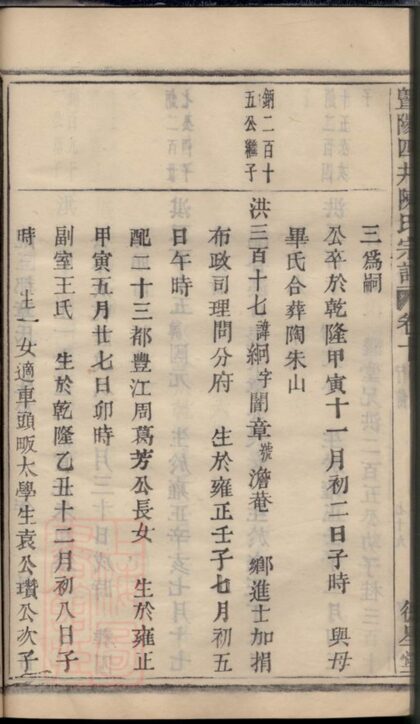 暨陽四井陳氏宗譜
卷十
三爲嗣
公卒於乾隆甲寅十一月初二日子時　與母
畢氏合葬陶朱山
鈵二百十
五公繼子
洪三百十七諱絅字闇章號澹菴　鄉進士加捐
布政司理問分府　生於雍正壬子七月初五
日午時
配二十三都豐江周葛芳公長女　生於雍正
甲寅五月廿七日卯時
副室王氏　生於乾隆乙丑十二月初八日子
時　生一女適車頭畈太學生袁公瓚公次子